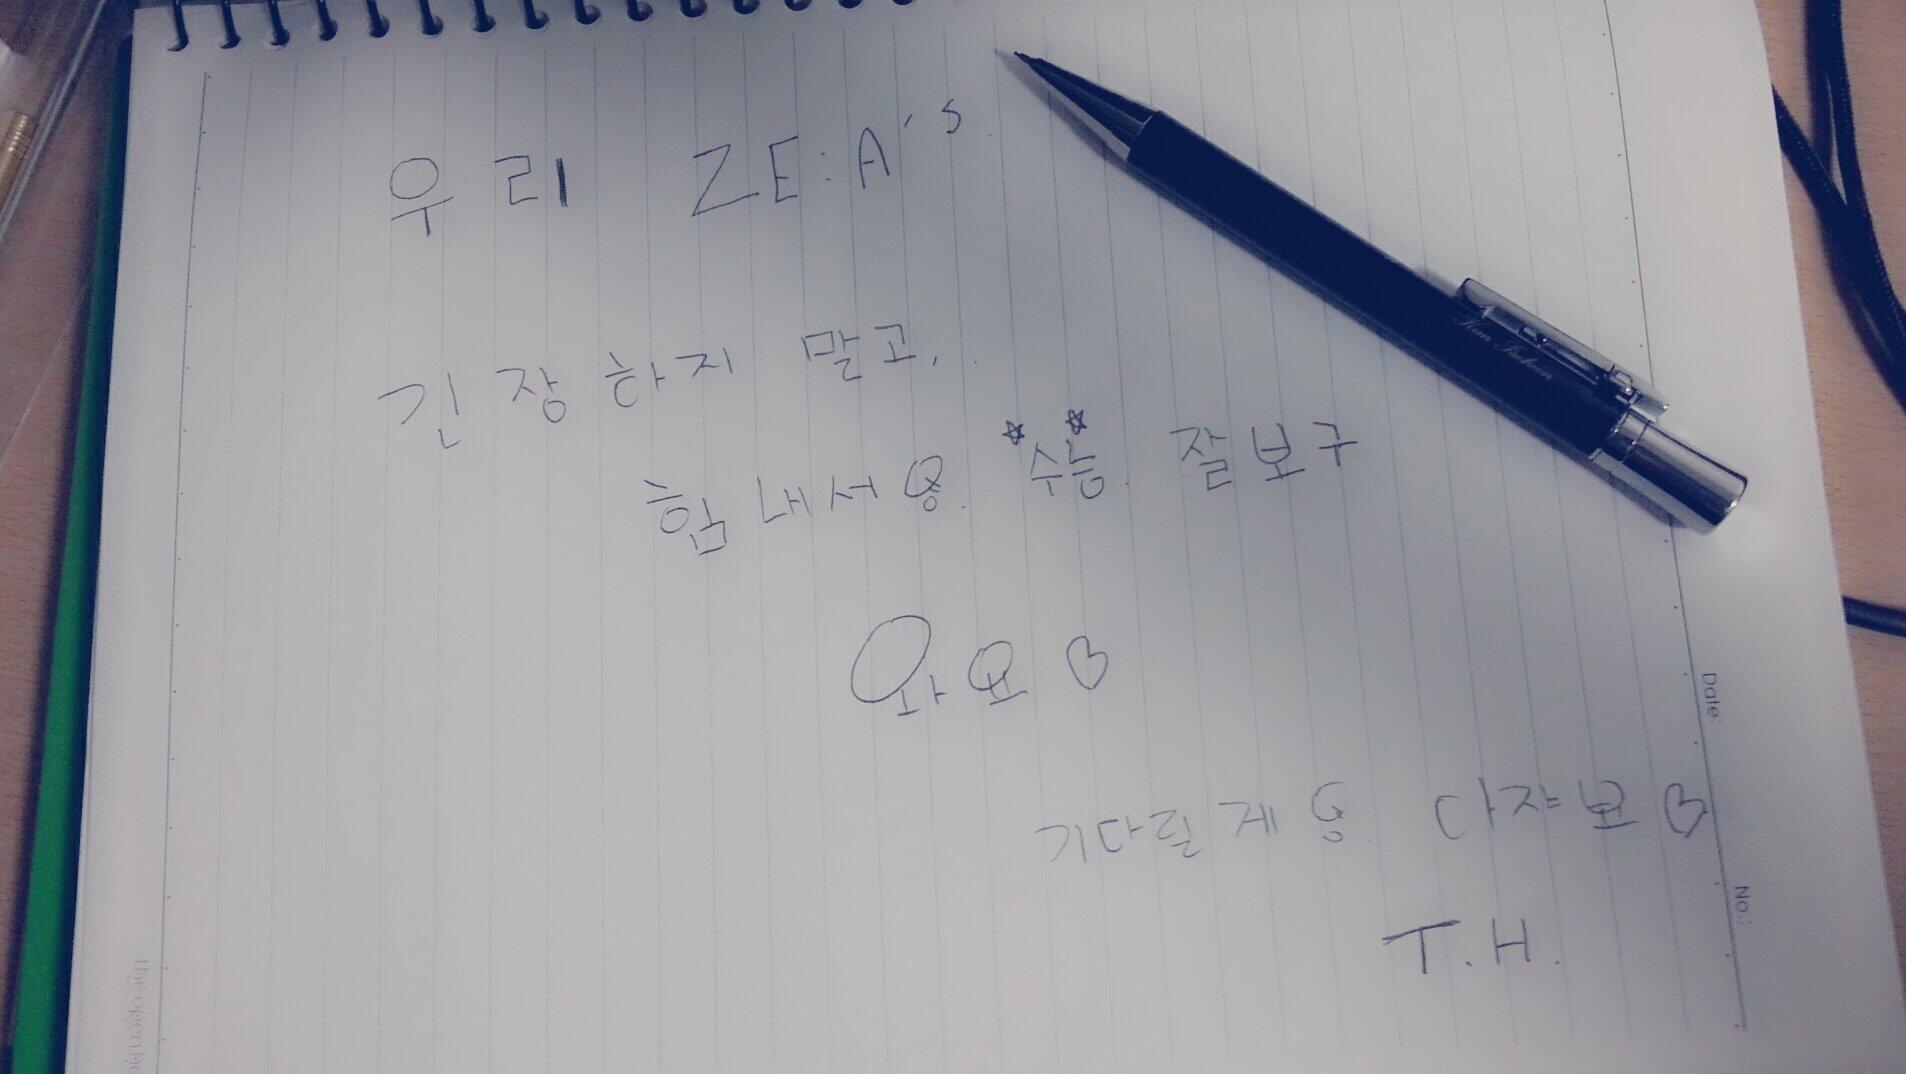 우리 ZE:A's
긴장하지 말고,
힘내서용. *수능* 잘보구
와요♡
기다릴게용. 다쟈보♡
T.H.
Date:
No.: